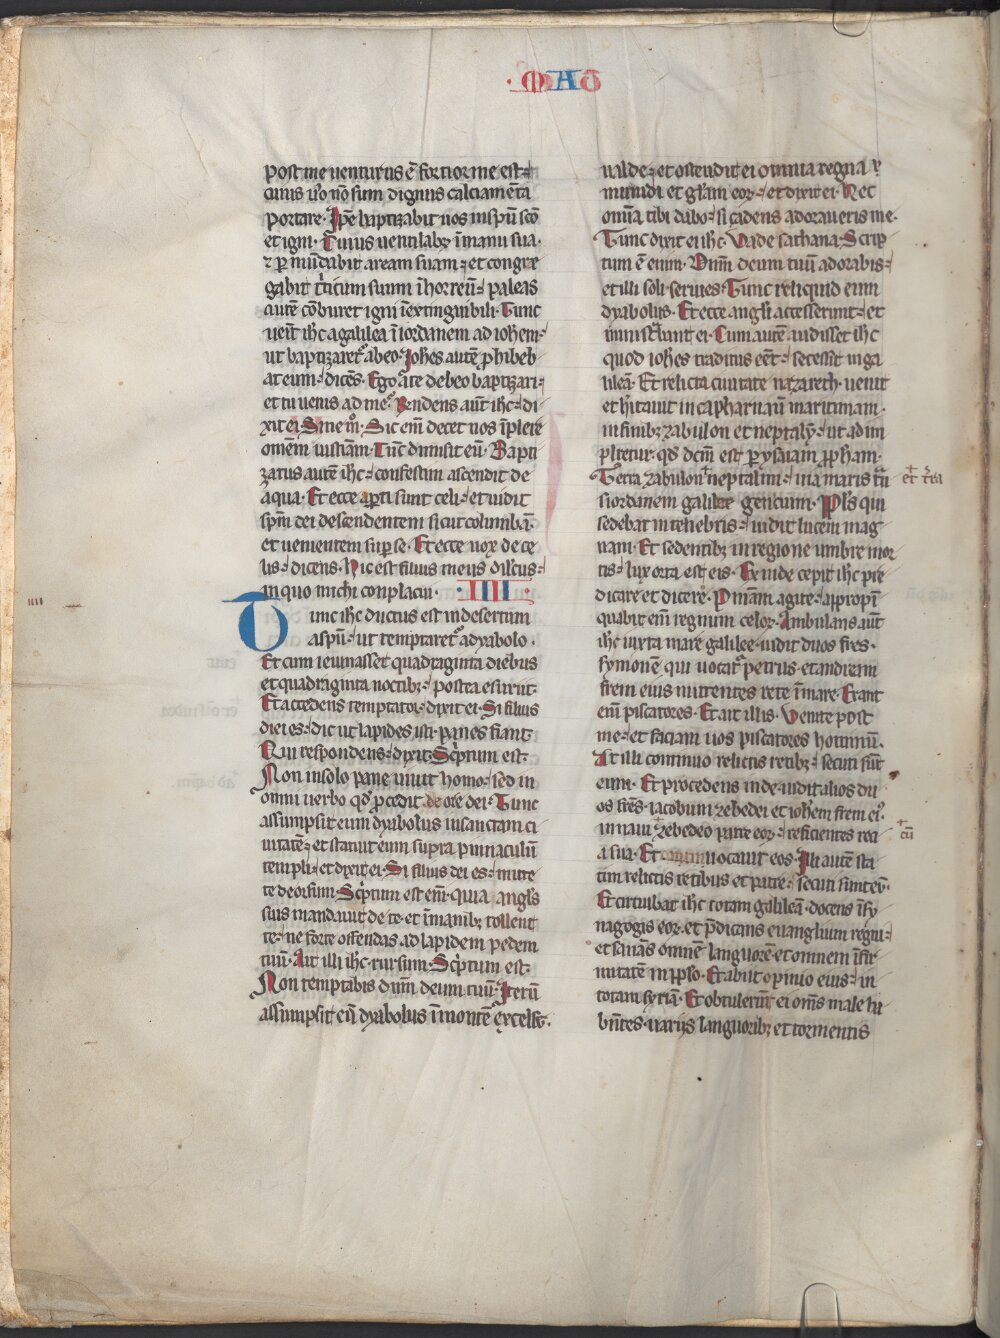 · MAð
post me uenturus ē fortior me est·
cuius ůo nō sum dignus calciamēta
portare· Ip̄e baptizabit uos in sp̄u sc̄o
et igni· Cuius uentilabꝝ ī manu sua·
⁊ ꝑmūdabit aream suam· et congre
gabit tͥticum suum ī horreū· paleas
autē cōburet igni īextinguibili· Tunc
uenit ih̄c a galilea ī iordanem ad ioh̄em·
ut baptizaretͬ ab eo· Joh̄es autē ꝓhibeb
at eum· dicēs· Ego a te debeo baptizari·
et tu uenis ad me· R̄ndens aūt ih̄c· di
xit ei· Sine m̊· Sic em̄ decet nos īplere
omēm iusticiam· Tūc dimisit eū· Bapti
zatus autē ih̄c· confestim ascendit de
aqua· Et ecce aꝑti sunt celi· et uidit
sp̄m dei descendentem sicut columbā·
et uenientem suꝑ se· Et ecce uox de ce
lis· dicens· Hic est filius meus dilc̄us·
in quo michi conplacui· · IIII ·
Tunc ih̄c ductus est in desertum
a sp̄u· ut temptaretͬ a dyabolo·
Et cum ieiunasset quadraginta diebus
et quadraginta noctibꝫ· postea esuriit·
Et accedens temptator· dixit ei· Si filius
dei es· dic ut lapides isti panes fiant·
Qui respondens· dixit· Sc̄ptum est·
Non in solo pane uiuit homo· sed in
omni uerbo qd̓ ꝓcedit de ore dei· Tunc
assumpsit eum dyabolus in sanctam ci
uitatē· et statuit eum supra pinnaculū
templi· et dixit ei· Si filius dei es· mitte
te deorsum· Sc̄ptum est em̄· quia angl̄s
suis mandauit de te· et ī manibꝫ tollent
te· ne forte offendas ad lapidem pedem
tuū· Ait illi ih̄c· rursum· Sc̄ptum est·
Non temptabis dn̄m deum tuū· Iterū
assumpsit eū dyabolus ī montē excelsū·
ualde· et ostendit ei omnia regna
mundi et gl̄am eoꝝ· et dixit ei· Hec
om̄ia tibi dabo· si cadens adoraueris me·
Tunc dixit ei ih̄c· Vade sathana· Scrip
tum ē enim· Dn̄m deum tuū adorabis·
et illi soli seruies· Tunc reliquid eum
dyabolus· Et ecce angl̄i accesserunt· et
ministͣbant ei· Cum autē audisset ih̄c
quod ioh̄es traditus eēt· secessit in ga
lileā· Et relicta ciuitate nazareth· uenit
et h̄itauit in capharnaū maritimam·
in finibꝫ zabulon et neptalȳ· ut adim
pleretur· qd̓ dc̄m est ꝑ ysaiam ꝓpham·
Terra zabulon neptalim· uia maris tn̄
s iordanem galilee gentium· Ppl̄s qui
sedebat in tenebris· uidit lucem mag
nam· Et sedentibꝫ in regione umbre mor
tis· lux orta est eis· Exinde cepit ih̄c pre
dicare et dicere· Pn̄iam agite· appropī
quabit em̄ regnum celoꝝ· Ambulans aūt
ih̄c iuxta mare galilee· uidit duos fr̄es·
symonē qui uocatͬ petrus· et andream
fr̄em eius mittentes rete ī mare· Erant
em̄ piscatores· Et ait illis· Venite post
me· et faciam uos piscatores hominū·
At illi continuo relictis retibꝫ· secuti sūt
eum· Et procedens inde· uidit alios du
os fr̄es· iacobum zebedei et ioh̄em fr̄em ei·
in naui zebedeo patre eoꝝ· reficientes reti
a sua· Et uocauit eos· Illi autē sta
tim relictis retibus et patre· secuti sunt eū·
Et circuibat ih̄c totam galileā· docens ī sy
nagogis eoꝝ· et p̄dicans euanglium regni·
et sanās omnē languorē· et omnem īfir
mitatē in pp̄lo· Et abiit opinio eius· in
totam syriā· Et obtulerūt ei om̄s male ha
bn̄tes· uarijs languoribꝫ et tormentis
+ et t̄ra
+ cū
IIII